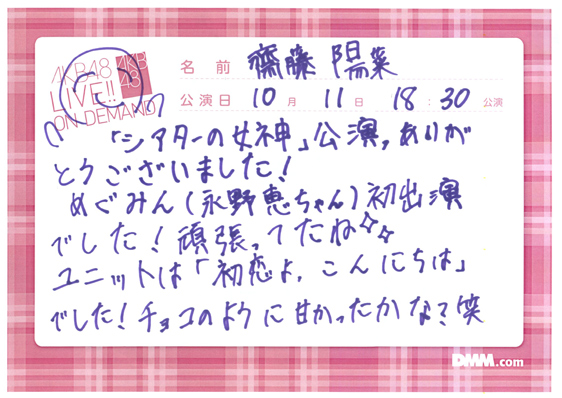 AKB48
LIVE!!
ON DEMAND
AKB
48
名前 齋藤陽菜
公演日 10月 11日 18:30公演
「シアターの女神」公演,ありが
とうございました!
めぐみん(永野恵ちゃん)初出演
でした!頑張ってたね☆☆
ユニットは「初恋よ,こんにちは」
でした!チョコのように甘かったかな?笑
DMM.com